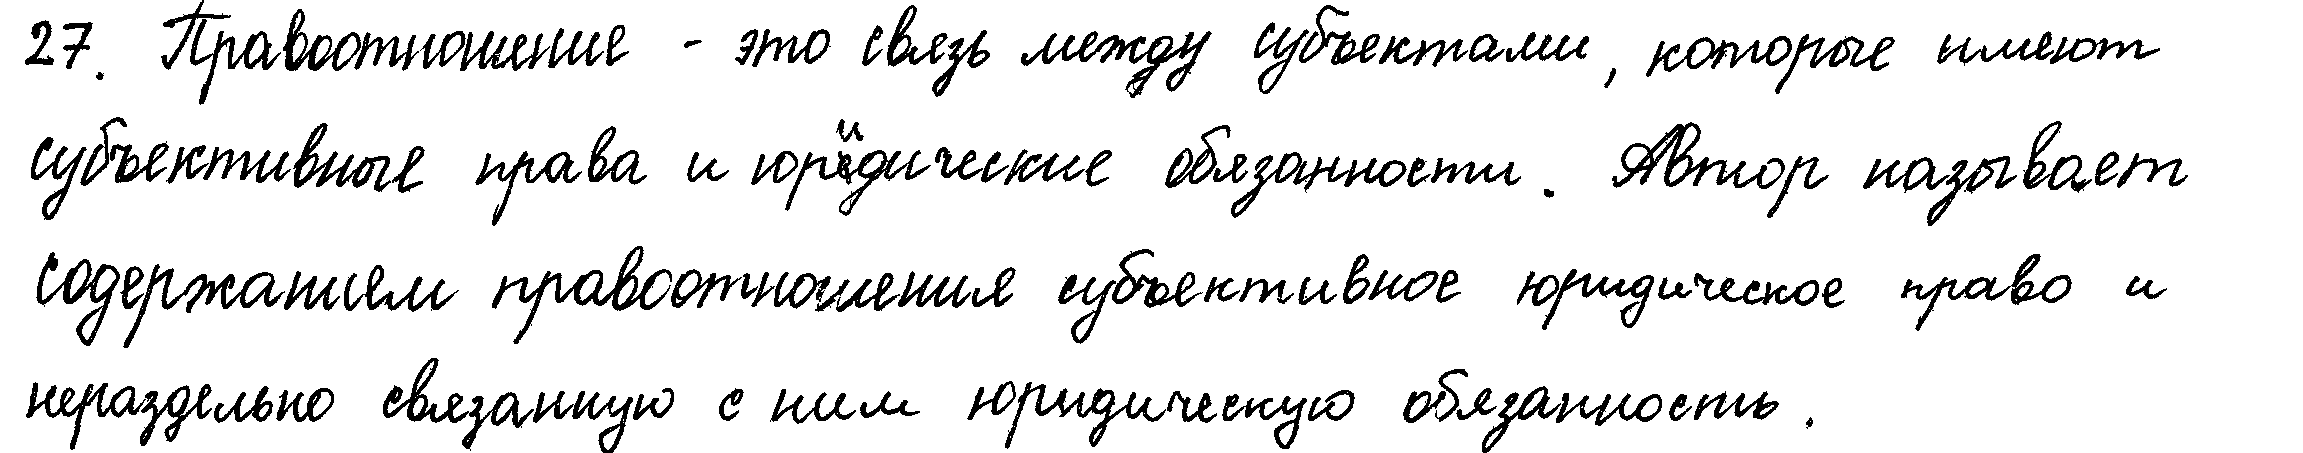 27. Правоотношение - это связь между субъектами, которые имеют
субъективные права и юридические обязанности. Автор называет
содержанием правоотношения субъективное юридическое право и
нераздельно связанную с ним юридическую обязанность.